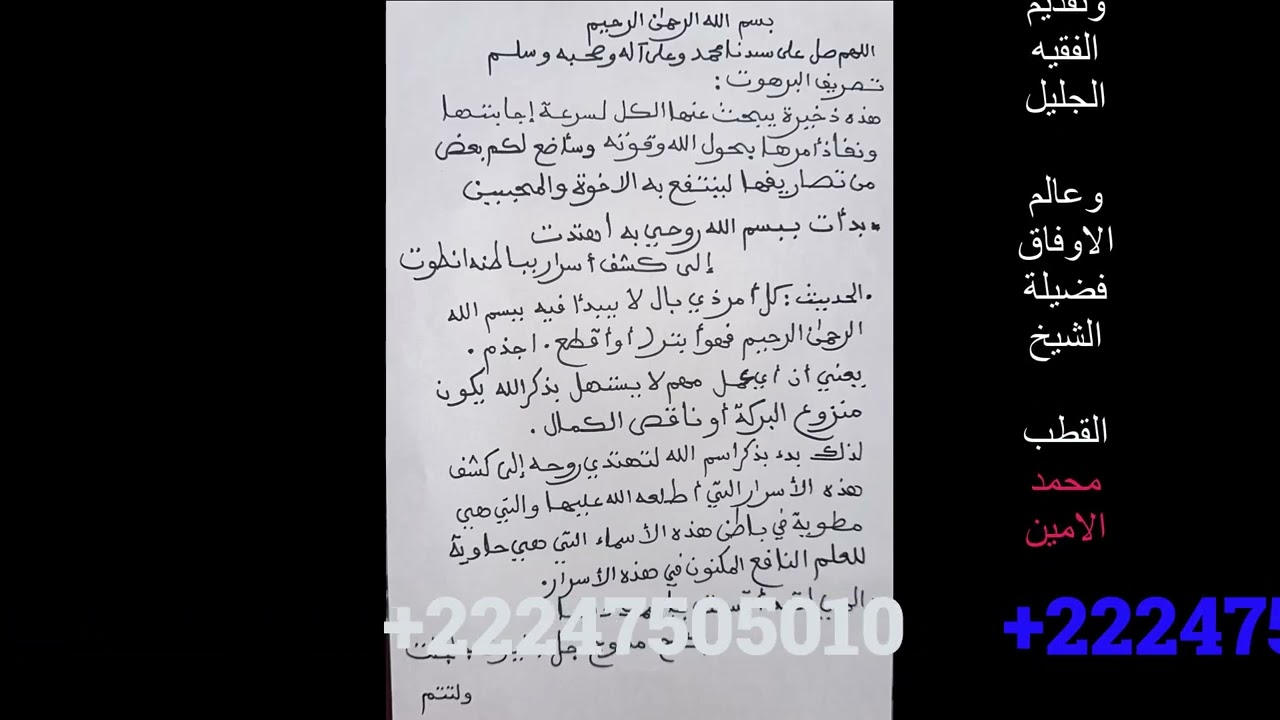 بسم الله الرحمٰن الرحيم
اللهم صل على سيدنا محمد وعلى آله وصحبه وسلم
تصريف البرهوت :
هذه ذخيرة يبحث عنها الكل لسرعة إجابتها
ونفاذ أمرها بحول الله وقوته وسأضع لكم بعض
من تصاريفها لينتفع به الاخوة والمحبين
• بدأت ببسم الله روحي به اهتدت
إلى كشف أسرار بباطنه انطوت
• الحديث : كل أمر ذي بال لا يبدأ فيه ببسم الله
الرحمٰن الرحيم فهو أبتر ( أو أقطع . اجذم .
يعني أن أي عمل مهم لا يستهل بذكر الله يكون
منزوع البركة أو ناقص الكمال .
لذلك بدء بذكر اسم الله لتهتدي روحه إلى كشف
هذه الأسرار التي أطلعه الله عليها والتي هي
مطوية في باطن هذه الأسماء التي هي حاوية
للعلم النافع المكنون في هذه الأسرار.
ولتتم
+22247505010
وتقديم
الفقيه
الجليل
وعالم
الاوفاق
فضيلة
الشيخ
القطب
محمد
الامين
+222475